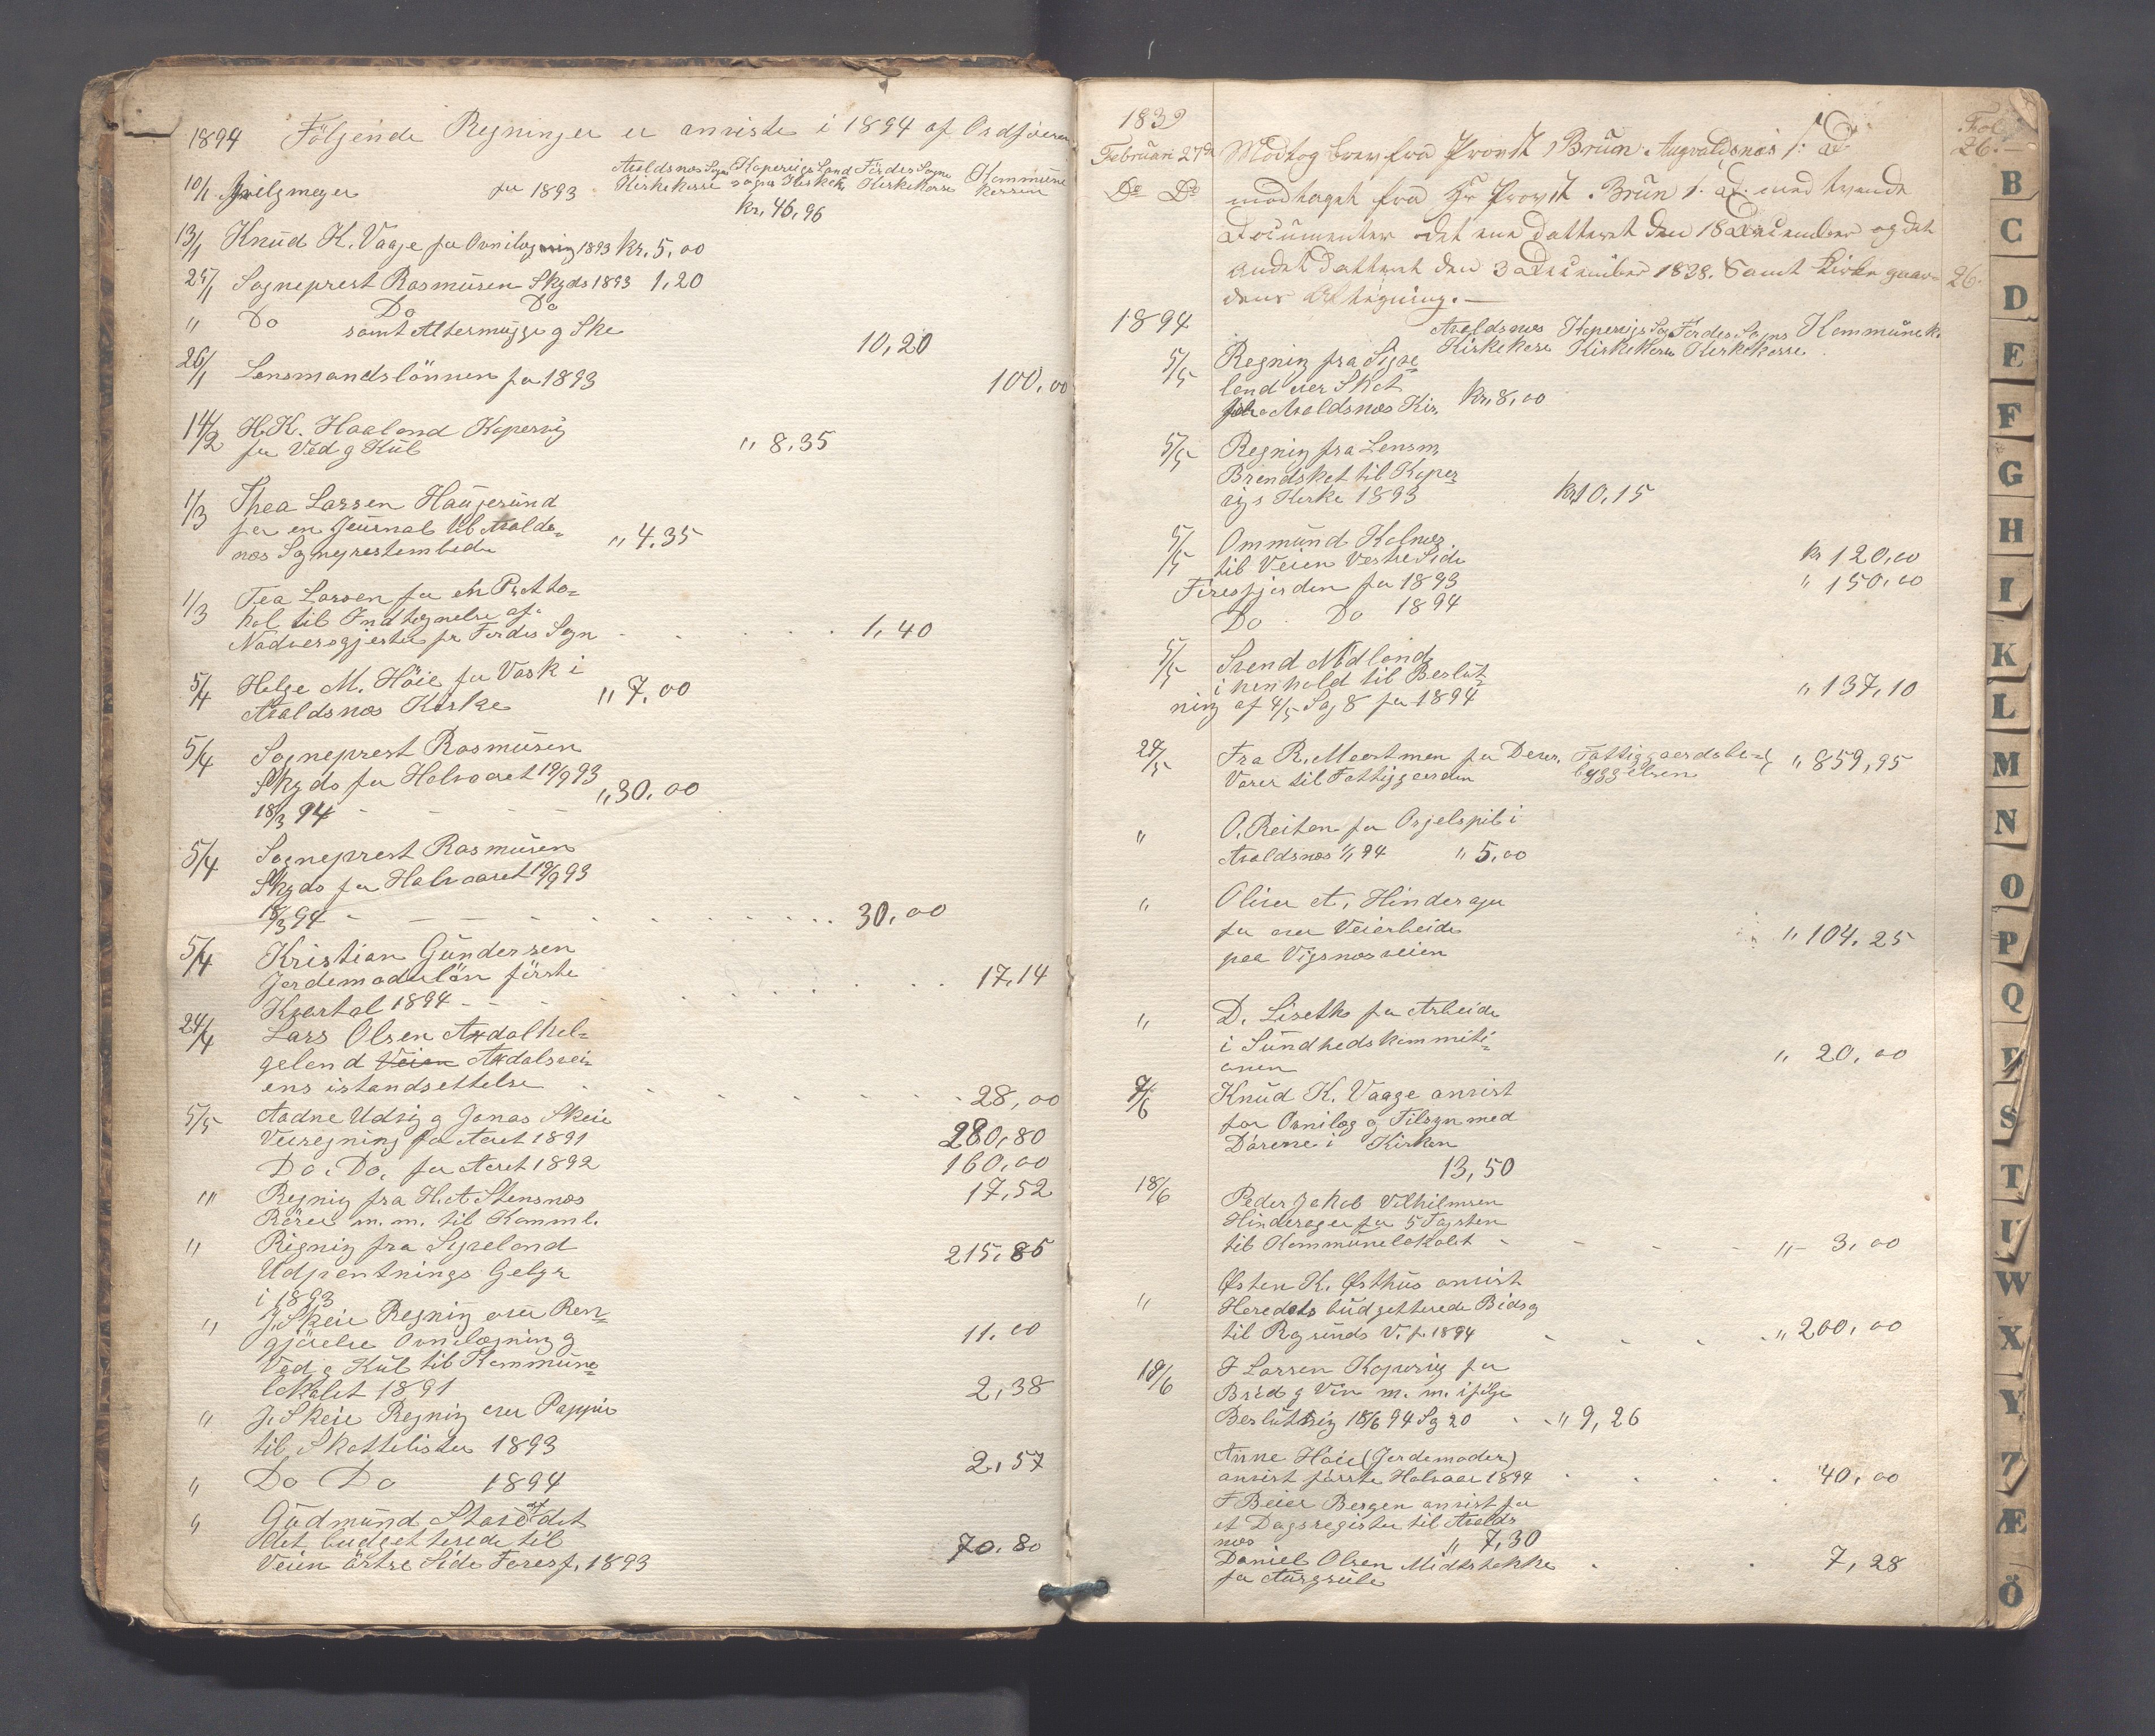 1894 Følgende Regninger er anviste i 1894 af Ordføreren
Avaldsnes Sogns Kopervigs Land Førdes Sogns Kommune
Kirkekasse sogns Kirkek. Kirkekasse kassen
10/1 for 1893 kr. 46,96
13/1 Knud K. Vaage for Ovnilægning 1893 kr. 5,00
25/1 Sogneprest Rasmusen Skyds 1893 1,20
" Do Do Do
samt Altermugge og Ske 10,20
26/1 Lensmandslønnen for 1893 100,00
14/2 H. K. Haaland Kopervig
for Ved og Kul " 8,35
1/3 Thea Larsen Haugesund
for en Journal til Avalds=
nes Sogneprestembede " 4,35
1/3 Tea Larsen for en Protto=
kol til Indtegnelse af
Nadversgjester for Førdes Sogn 1,40
5/4 Helge M. Höie for Vask i
Avaldsnes Kirke " 7,00
5/4 Sogneprest Rasmusen
Skyds for Halvaaret 19/9 93
18/3 94 " 30,00
5/4 Sogneprest Rasmusen
Skyds for Halvaaret 19/9 93
18/3 94 30,00
5/4 Kristian Gundersen
Jordemoderløn förste
Kvartal 1894 17,14
24/4 Lars Olsen Axdal hel=
geland Veien Axdalsvei=
ens istandsettelse 28,00
5/5 Aadne Udvig og Jonas Skeie
Veiregning for Aaret 1891 280,80
Do. Do. for Aaret 1892 160,00
"' Regning fra H. A. Stensnes 17,52
Rörer m. m. til Komml.
" Rigning fra Syreland 215,85
Udpantnings Gebyr
i 1893
" J. Skeie Regning over Ren=
gjörelse Ovnilægning og 11,00
Ved og Kul til Kommune
lokalet 1891 2,38
" J. Skeie Regning over Pappir
til Skattelister 1893 2,57
" Do Do 1894
" Gudmund Stave af det
det budgetterede til
Veien östre Side Foresf. 1893 70,80
1839 Fol
Februari 27de Modtog brev fra Provst Brun Augvaldsnæs 26.
Do Do modtaget fra Hr Provst Brun med tvende
Documenter det ene datteret den 18 December og det
andet datteret den 3 December 1838. Samt Kirke gaar= 26.
dens
1894 Avaldsnes Kopervigs Sogns Førdes Sogns Kommunek.
Kirkekasse Kirkekasse Kirkekasse
5/5 Regning fra Syre=
land over Skat
for Avaldsnes Kir. kr. 8,00
5/5 Regning fra Lensm.
Brandskat til Koper=
vigs Kirke 1893 kr. 10,15
5/5 Ommund Kolnes
til Veien Vestre Side kr 120,00
Föresfjorden for 1893 " 150,00
Do Do 1894
5/5 Svend Mødland
i henhold til Beslut=
ning af 4/5 Sag 8 for 1894 " 137,10
24/5 Fra R. Meestmen for Derer. Fattiggaardsbe= " 859,95
Varer til Fattiggaarden byggelsen
" O. Reiton for Orgelspil i
Avaldsnes 1/1 94 " 5,00
" Oliver A. Hinderager
for over Veiarbeide
paa Vigsnesveien " 104,25
" D. Liseth for Arbeide
i Sundhedskommiti=
onen " 20,00
7/6 Knud K. Vaage anvist
for Ovnilæg og Tilsyn med
Dörene i Kirken
13,50
18/6 Peder Jakob Vilhilmsen
Hinderager for 5 Fagsten
til Kommunelokalet " 3,00
" Østen K. Østhus anvist
Heredets budgetterede Bidrag
til Rogsunds V. f. 1894 " 200,00
18/6 J Larsen Kopervig for
Bröd og Vin m. m. ifølge
Beslutning 18/6 94 Sag 20 " 9,26
Anne Höie (Jordemoder)
anvist förste Halvaar 1894 40,00
F Beier Bergen anvist for
et Dagsregister til Avalds
nes " 7,30
Daniel Olsen Midtstokke
for Aurgrule 7,28
B
C
D
E
F
G
H
I
K
L
M
N
O
P
Q
R
S
T
U
W
X
Y
Z
Æ
Ö